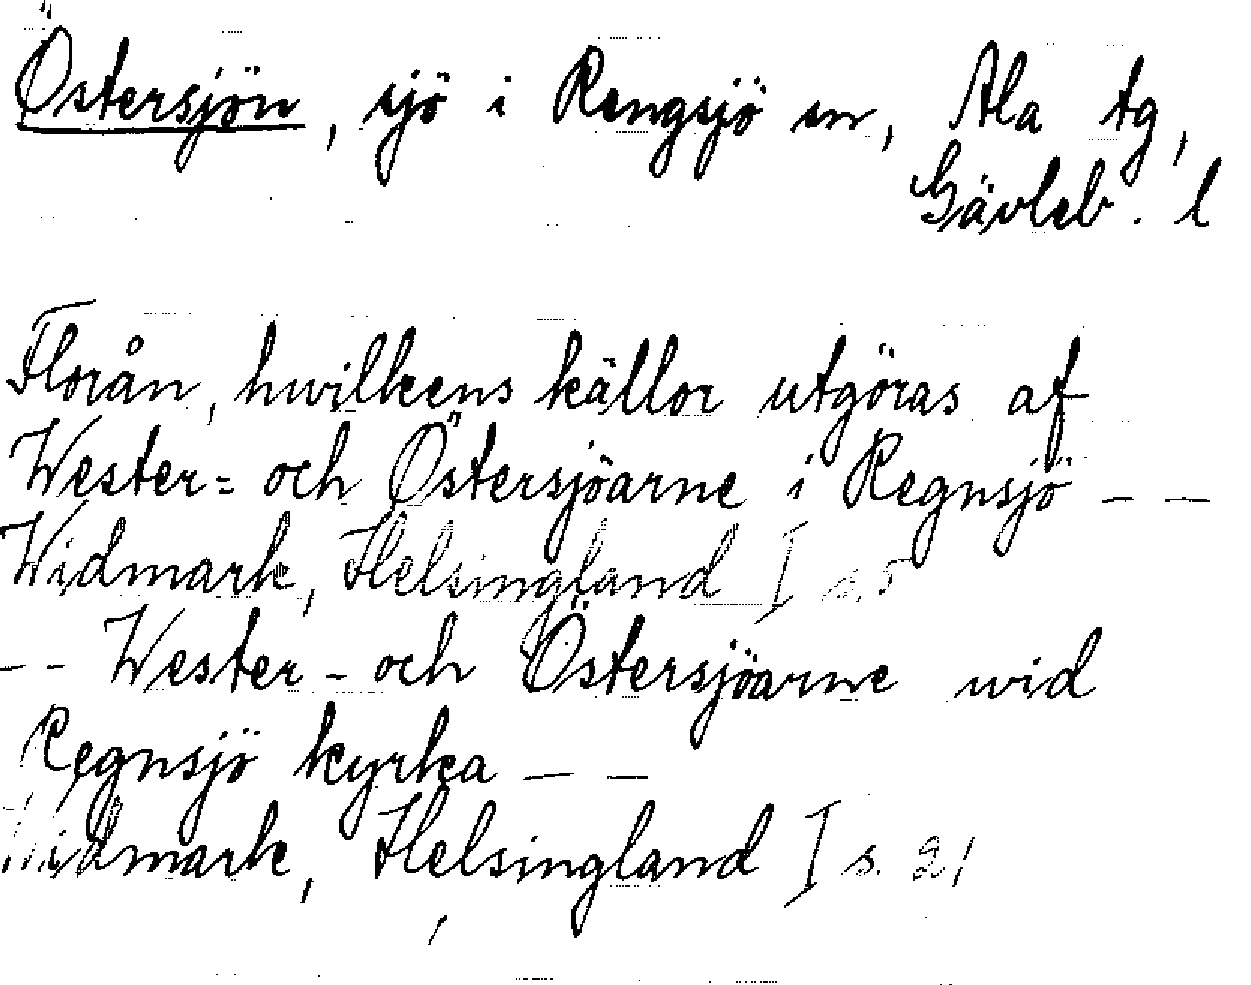 Östersjön, sjö i Rengsjö sn, Ala tg,
Gävleb. l
Florån, hvilkens källor utgöras af
Wester= och Östersjöarne i Regnsjö – –
Widmark, Helsingland I s. 5
– – Wester- och Östersjöarne wid
Regnsjö kyrka – –
Widmark, Helsingland I s. 21